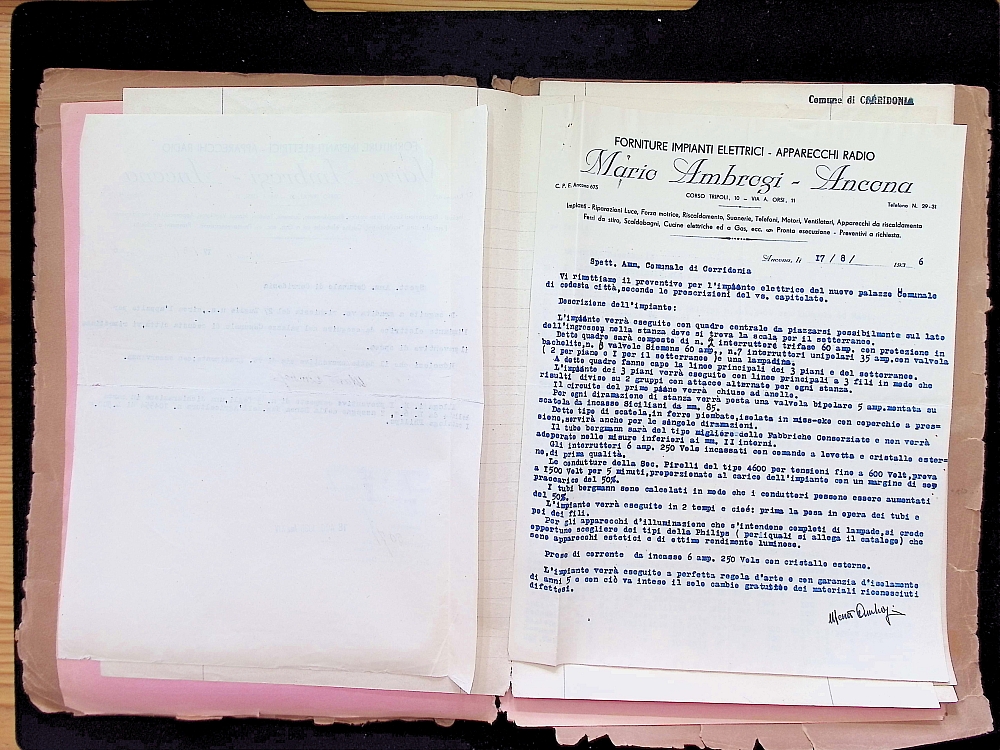 Comune di CORRIDONIA
FORNITURE IMPIANTI ELETTRICI - APPARECCHI RADIO
Mario Ambrogi - Ancona
C. P. E. Ancona 675
CORSO TRIPOLI, 10 - VIA A. ORSI, 11
Telefono N. 29-31
Impianti - Riparazioni Luce, Forza motrice, Riscaldamento, Suonerie, Telefoni, Motori, Ventilatori, Apparecchi da riscaldamento
Ferri da stiro, Scaldabagni, Cucine elettriche ed a Gas, ecc. Pronta esecuzione - Preventivi a richiesta.
Ancona, li 17/8/ 193 6
Spett. Amm. Comunale di Corridonia
Vi rimettiamo il preventivo per l'impianto elettrico del nuovo palazzo Comunale
di codesta città,secondo le prescrizioni del vs. capitolato.
Descrizione dell'impianto:
L'impianto verrà eseguito con quadro centrale da piazzarsi possibilmente sul lato
dell'ingresso, nella stanza dove si trova la scala per il sotterraneo.
Detto quadro sarà composto di n. interruttore trifase 60 amp. con protezione in
bachelite,n. valvole Siemens 60 amp., n.7 interruttori unipolari 35 amp.con valvola
( 2 per piano e I per il sotterraneo )e una lampadina.
A detto quadro fanno capo le linee principali dei 3 piani e del sotterraneo.
L'impianto dei 3 piani verrà eseguito con linee principali a 3 fili in modo che
risulti diviso su 2 gruppi con attacco alternato per ogni stanza.
Il circuito del primo piano verrà chiuso ad anello.
Per ogni diramazione di stanza verrà posta una valvola bipolare 5 amp.montata su
scatola da incasso Siciliani da mm. 85.
Detto tipo di scatola,in ferro piombato,isolata in miss-oke con coperchio a pres=
sione,servirà anche per le singole diramazioni.
Il tubo bergmann sarà del tipo migliore delle Fabbriche Consorziate e non verrà
adoperato nelle misure inferiori ai mm. II interni.
Gli interruttori 6 amp. 250 Vols incassati con comando a levetta e cristallo ester=
no,di prima qualità.
Le condutture della Soc. Pirelli del tipo 4600 per tensioni fino a 600 Volt,prova
a I500 Volt per 5 minuti,proporzionate al carico dell'impianto con un margine di sop
praccarico del 50%.
I tubi bergmann sono calcolati in modo che i conduttori possono essere aumentati
del 50%.
L'impianto verrà eseguito in 2 tempi e cioé: prima la posa in opera dei tubi e
poi dei fili.
Per gli apparecchi d'illuminazione che s'intendono completi di lampade,si crede
opportuno scegliere dei tipi della Philips ( per iquali si allega il catalogo) che
sono apparecchi estetici e di ottimo rendimento luminoso.
Prese di corrente da incasso 6 amp. 250 Vols con cristallo esterno.
L'impianto verrà eseguito a perfetta regola d'arte e con garanzia d'isolamento
di anni 5 e con ciò va inteso il solo cambio gratuito dei materiali riconosciuti
difettosi.